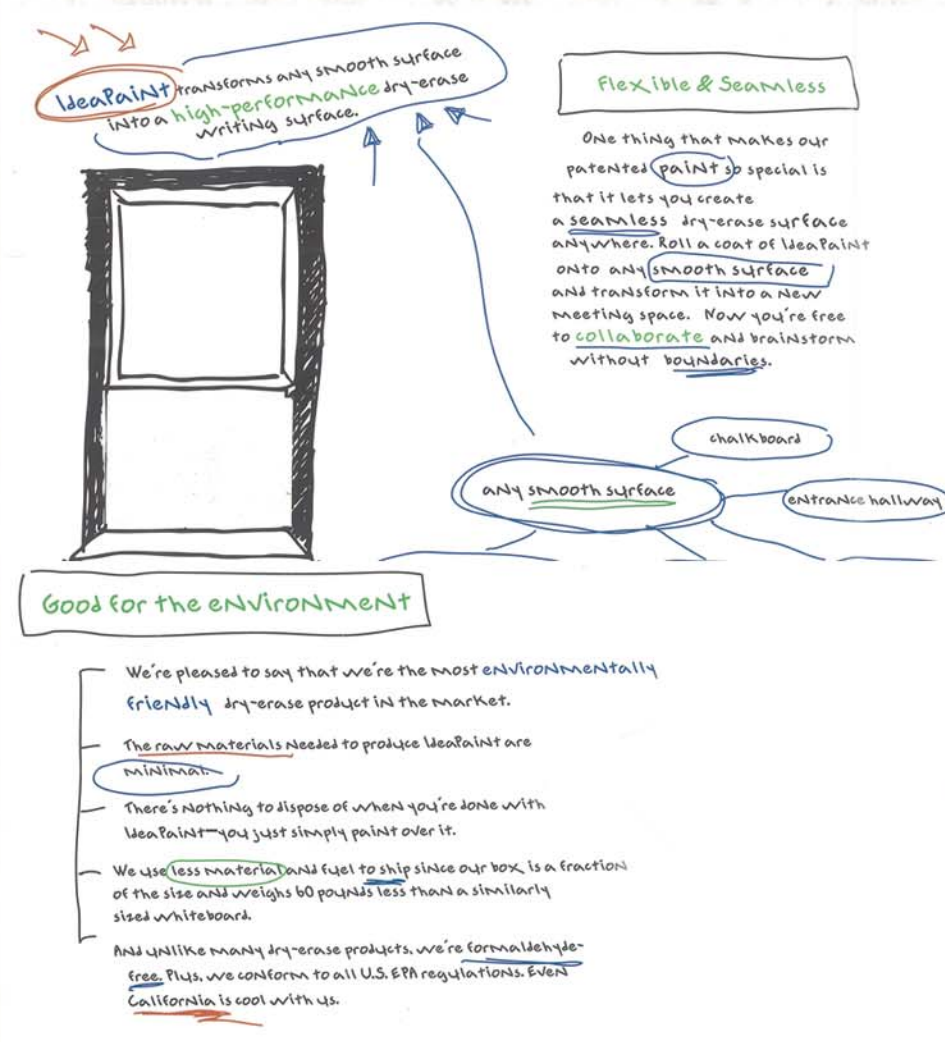 IdeaPaint transforms any smooth surface
into a high-performance dry-erase
writing surface.
Flexible & Seamless
One thing that makes our
patented paint so special is
that it lets you create
a seamless dry-erase surface
anywhere. Roll a coat of IdeaPaint
onto any smooth surface
and transform it into a new
meeting space. Now you're free
to collaborate and brainstorm
without boundaries.
chalkboard
any smooth surface
entrance hallway
Good for the environment
We're pleased to say that we're the most environmentally
friendly dry-erase product in the market.
The raw materials needed to produce IdeaPaint are
minimal.
There's nothing to dispose of when you're done with
IdeaPaint—you just simply paint over it.
We use less material and fuel to ship since our box, is a fraction
of the size and weighs 60 pounds less than a similarly
sized whiteboard.
And unlike many dry-erase products, we're formaldehyde-
free. Plus, we conform to all U.S. EPA regulations. Even
California is cool with us.